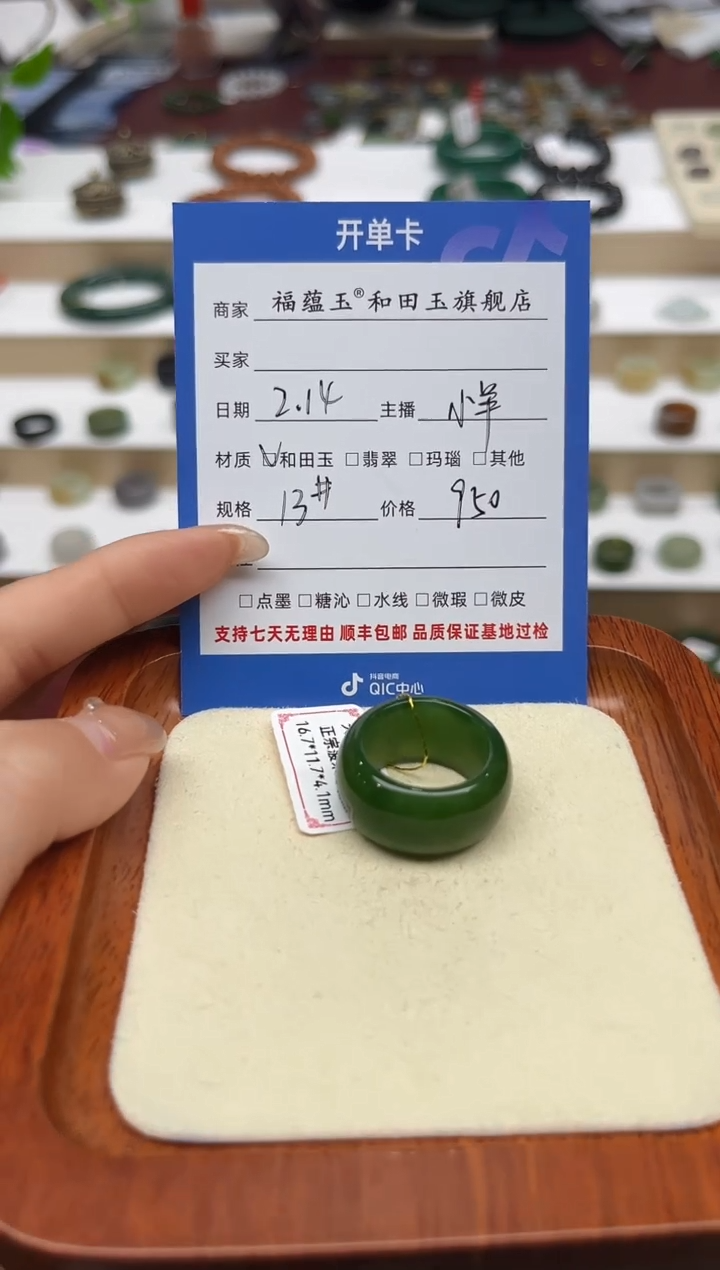 开单卡
商家 福蕴玉®和田玉旗舰店
买家
日期 2.14 主播 小羊
材质 ☑和田玉 □翡翠 □玛瑙 □其他
规格 13# 价格 950
□点墨 □糖沁 □水线 □微瑕 □微皮
支持七天无理由 顺丰包邮 品质保证基地过检
抖音电商
QIC中心
正宗
16.7*11.7*4.1mm